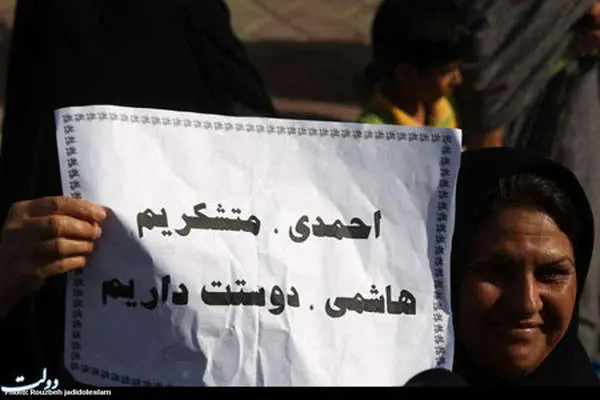 احمدی . متشکریم
هاشمی . دوستت داریم
دولت
Photo: Rouzbeh jadidoleslam